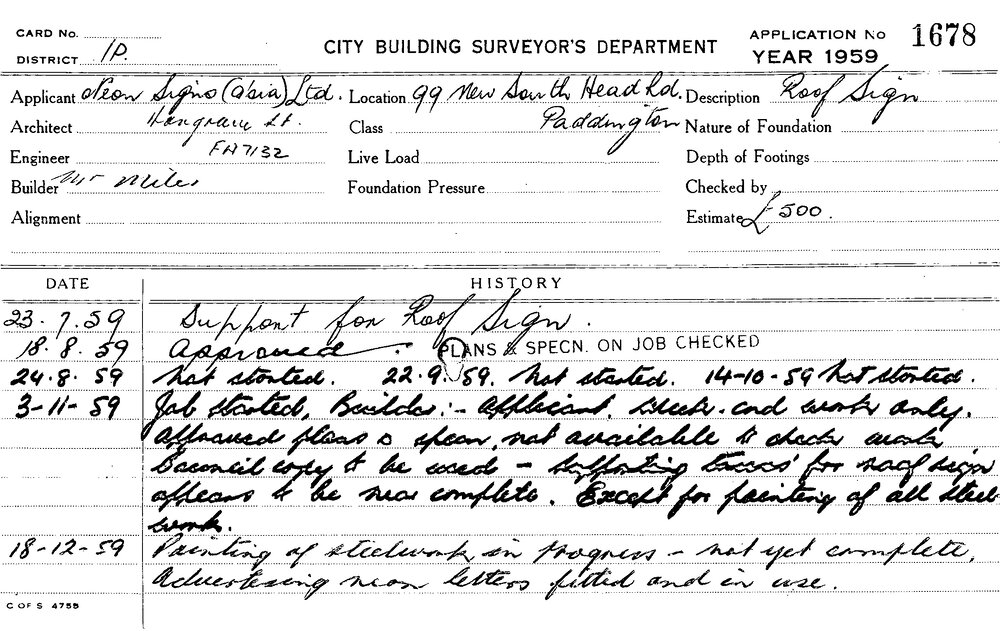 CARD No.
DISTRICT 1P.
CITY BUILDING SURVEYOR'S DEPARTMENT
APPLICATION No 1678
YEAR 1959
Applicant Neon Signs (Asia) Ltd. Location 99 New South Head Rd. Description Roof Sign
Architect Hargrave St. Class Paddington Nature of Foundation
Engineer FA7132 Live Load Depth of Footings
Builder Mr Miles Foundation Pressure Checked by
Alignment Estimate £500.
DATE HISTORY
23.7.59 Support for Roof Sign.
18.8.59 Approved. PLANS & SPECN. ON JOB CHECKED
24.8.59 Not started. 22.9.59. Not started. 14-10-59 Not started.
3-11-59 Job started, Builder:- Applicant. and work only.
Approved plans & specn. not available to check work
Council copy to be used - Supporting for roof sign
appears to be near complete. Except for painting of all steel
work.
18-12-59 Painting of steelwork in progress - not yet complete.
Advertising neon letters fitted and in use.
C OF S 4755